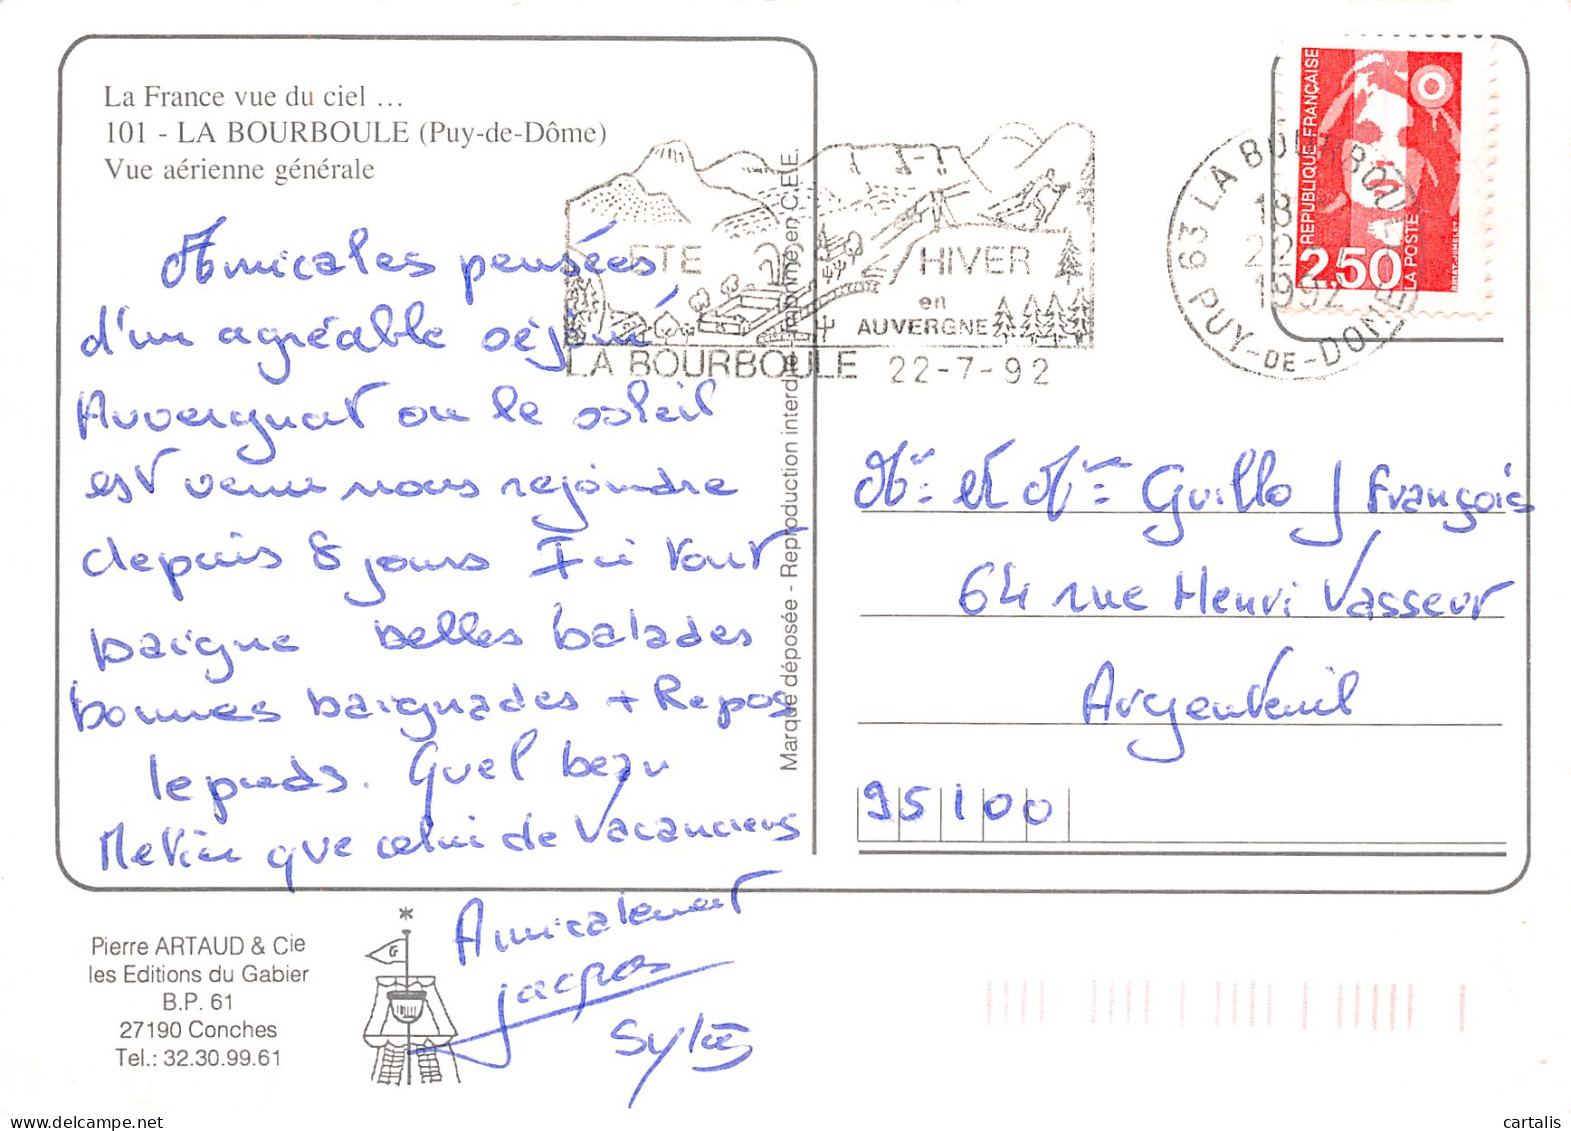 La France vue du ciel ...
101 - LA BOURBOULE (Puy-de-Dôme)
Vue aérienne générale
Amicales pensées
d'un agréable séjour
Auvergnat ou le soleil
est venu nous rejoindre
depuis 8 jours Ici tout
baigne belles balades
bonnes baignades + Repos
le pieds. Quel beau
Metier que celui de Vacanciers
Amicalement
jacques
Pierre ARTAUD & Cie
les Editions du Gabier
B.P. 61
27190 Conches
Tel.: 32.30.99.61
G
Marque déposée - Reproduction interdite - Imprimé en C.E.E.
ETE
HIVER
en
AUVERGNE
LA BOURBOULE 22-7-92
63 LA BOURBOULE
18
22
1992
PUY-DE-DOME
REPUBLIQUE FRANÇAISE
2,50
LA POSTE
Mr et Mme Guillo François
64 rue Henri Vasseur
Argenteuil
95100
cartalis